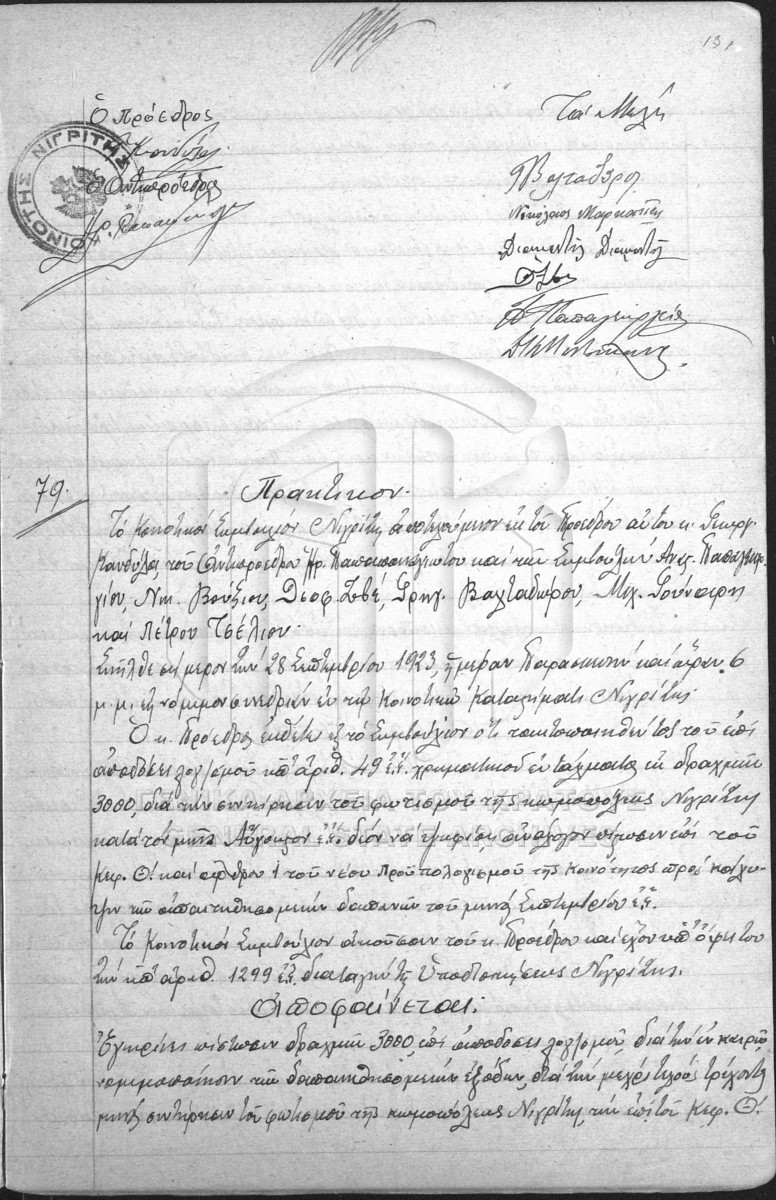 131
Ὁ Πρόεδρος
Τὰ Μέλη
ΚΟΙΝΟΤΗΣ ΝΙΓΡΙΤΗΣ
Ὁ Ἀντιπρόεδρος
Νικόλαος
Διαμαντῆς Διαμαντῆ
Παπαγεωργίου
79.
Πρακτικον.
Τὸ Κοινοτικὸν Συμβούλιον Νιγρίτης ἀποτελούμενον ἐκ τοῦ Προέδρου αὐτοῦ κ. Γεωργ.
Κανδύλα, τοῦ Ἀντιπροέδρου Χρ. Παπαπαναγιώτου καὶ τῶν Συμβούλων Ἀνες. Παπαγεωρ-
γίου, Νικ. Βούζιου, Θεοφ. Ζωβέ, Γρηγ. Βαλταδώρου, Μιχ. Γούναρη
καὶ Πέτρου Τσέλιου.
Συνῆλθε σήμερον τὴν 28 Σεπτεμβρίου 1923, ἡμέραν Παρασκευὴν καὶ ὥραν 6
μ.μ. εἰς νόμιμον συνεδρίαν ἐν τῷ Κοινοτικῷ Καταστήματι Νιγρίτης.
Ὁ κ. Πρόεδρος ἐκθέτει εἰς τὸ Συμβούλιον ὅτι τακτοποιηθέντος τοῦ ἐπὶ
ἀποδόσει λογ)σμοῦ ὑπ' ἀριθ. 49 ἐ.ἔ. χρηματικοῦ ἐντάλματος ἐκ δραχμῶν
3000, διὰ τὴν συντήρησιν τοῦ φωτισμοῦ τῆς κωμοπόλεως Νιγρίτης
κατὰ τὸν μῆνα Αὔγουστον ἐ.ἔ. δέον νὰ ψηφίσῃ ἀνάλογον πίστωσιν ἐπὶ τοῦ
Κεφ. Θ! καὶ ἄρθρου 1 τοῦ νέου Προϋπολογισμοῦ τῆς Κοινότητος πρὸς κάλυ-
ψιν τῶν ἀπαιτηθησομένων δαπανῶν τοῦ μηνὸς Σεπτεμβρίου ἐ.ἔ.
Τὸ Κοινοτικὸν Συμβούλιον ἀκοῦσαν τοῦ κ. Προέδρου καὶ ἔχον ὑπ' ὄψει του
τὴν ὑπ' ἀριθ. 1299 ἐ.ἔ. διαταγὴν τῆς Ὑποδιοικήσεως Νιγρίτης.
Ἀποφαίνεται:
Ἐγκρίνει πίστωσιν δραχμῶν 3000, ἐπὶ ἀποδόσει λογ)σμοῦ, διὰ τὴν ἐν καιρῷ
νομιμοποίησιν τῶν δαπανηθησομένων ἐξόδων, διὰ τὴν μέχρι τέλους τρέχοντος
μηνὸς συντήρησιν τοῦ φωτισμοῦ τῆς κωμοπόλεως Νιγρίτης, τὴν ἐπὶ τοῦ Κεφ. Θ!
ΓΕΝΙΚΑ ΑΡΧΕΙΑ ΤΟΥ ΚΡΑΤΟΥΣ
GENERAL STATE ARCHIVES